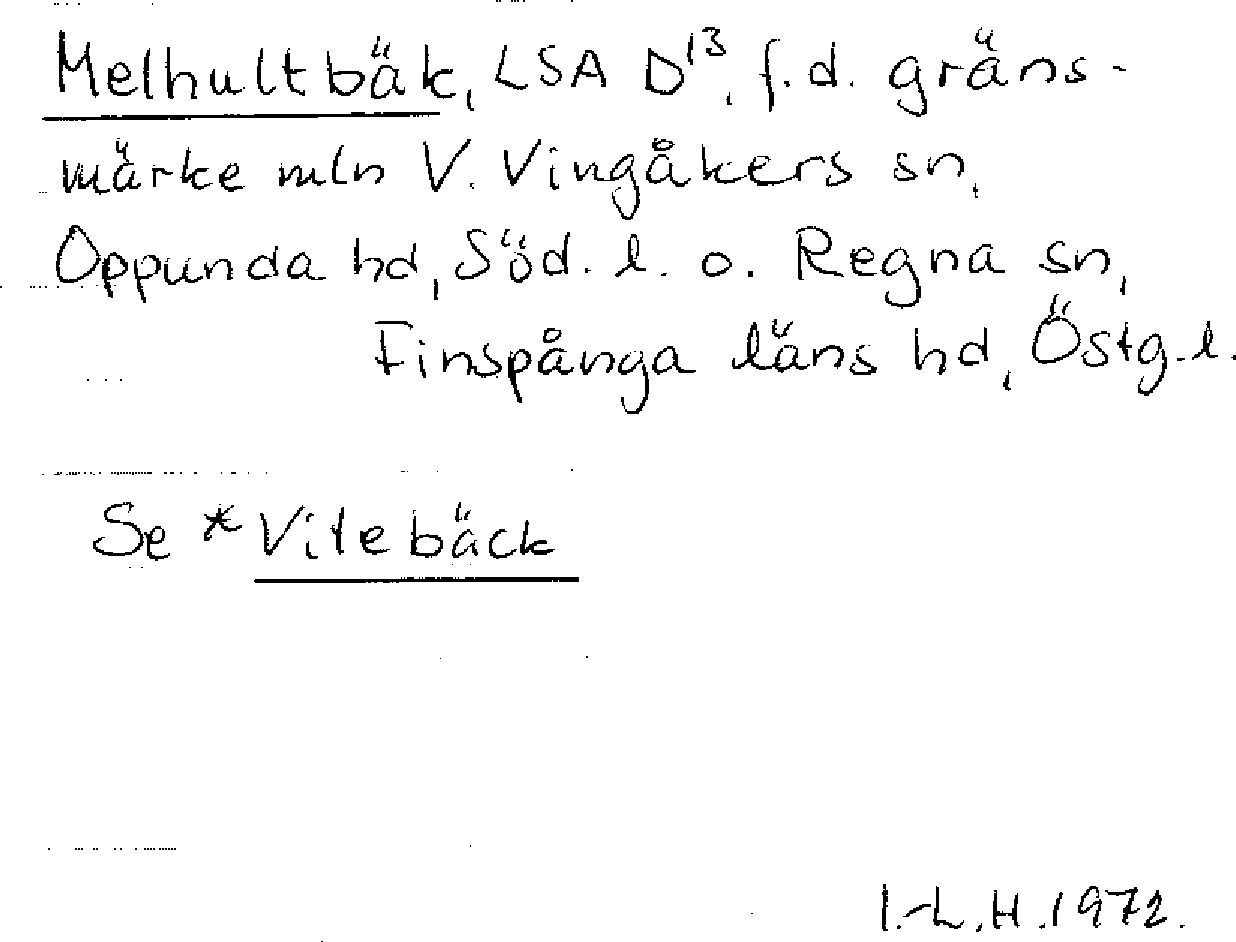 Melhultbäk, LSA D¹³, f.d. gräns-
märke mln V. Vingåkers sn,
Oppunda hd, Söd. l. o. Regna sn,
Finspånga läns hd, Östg. l.
Se *Vitebäck
I.-L.H. 1972.